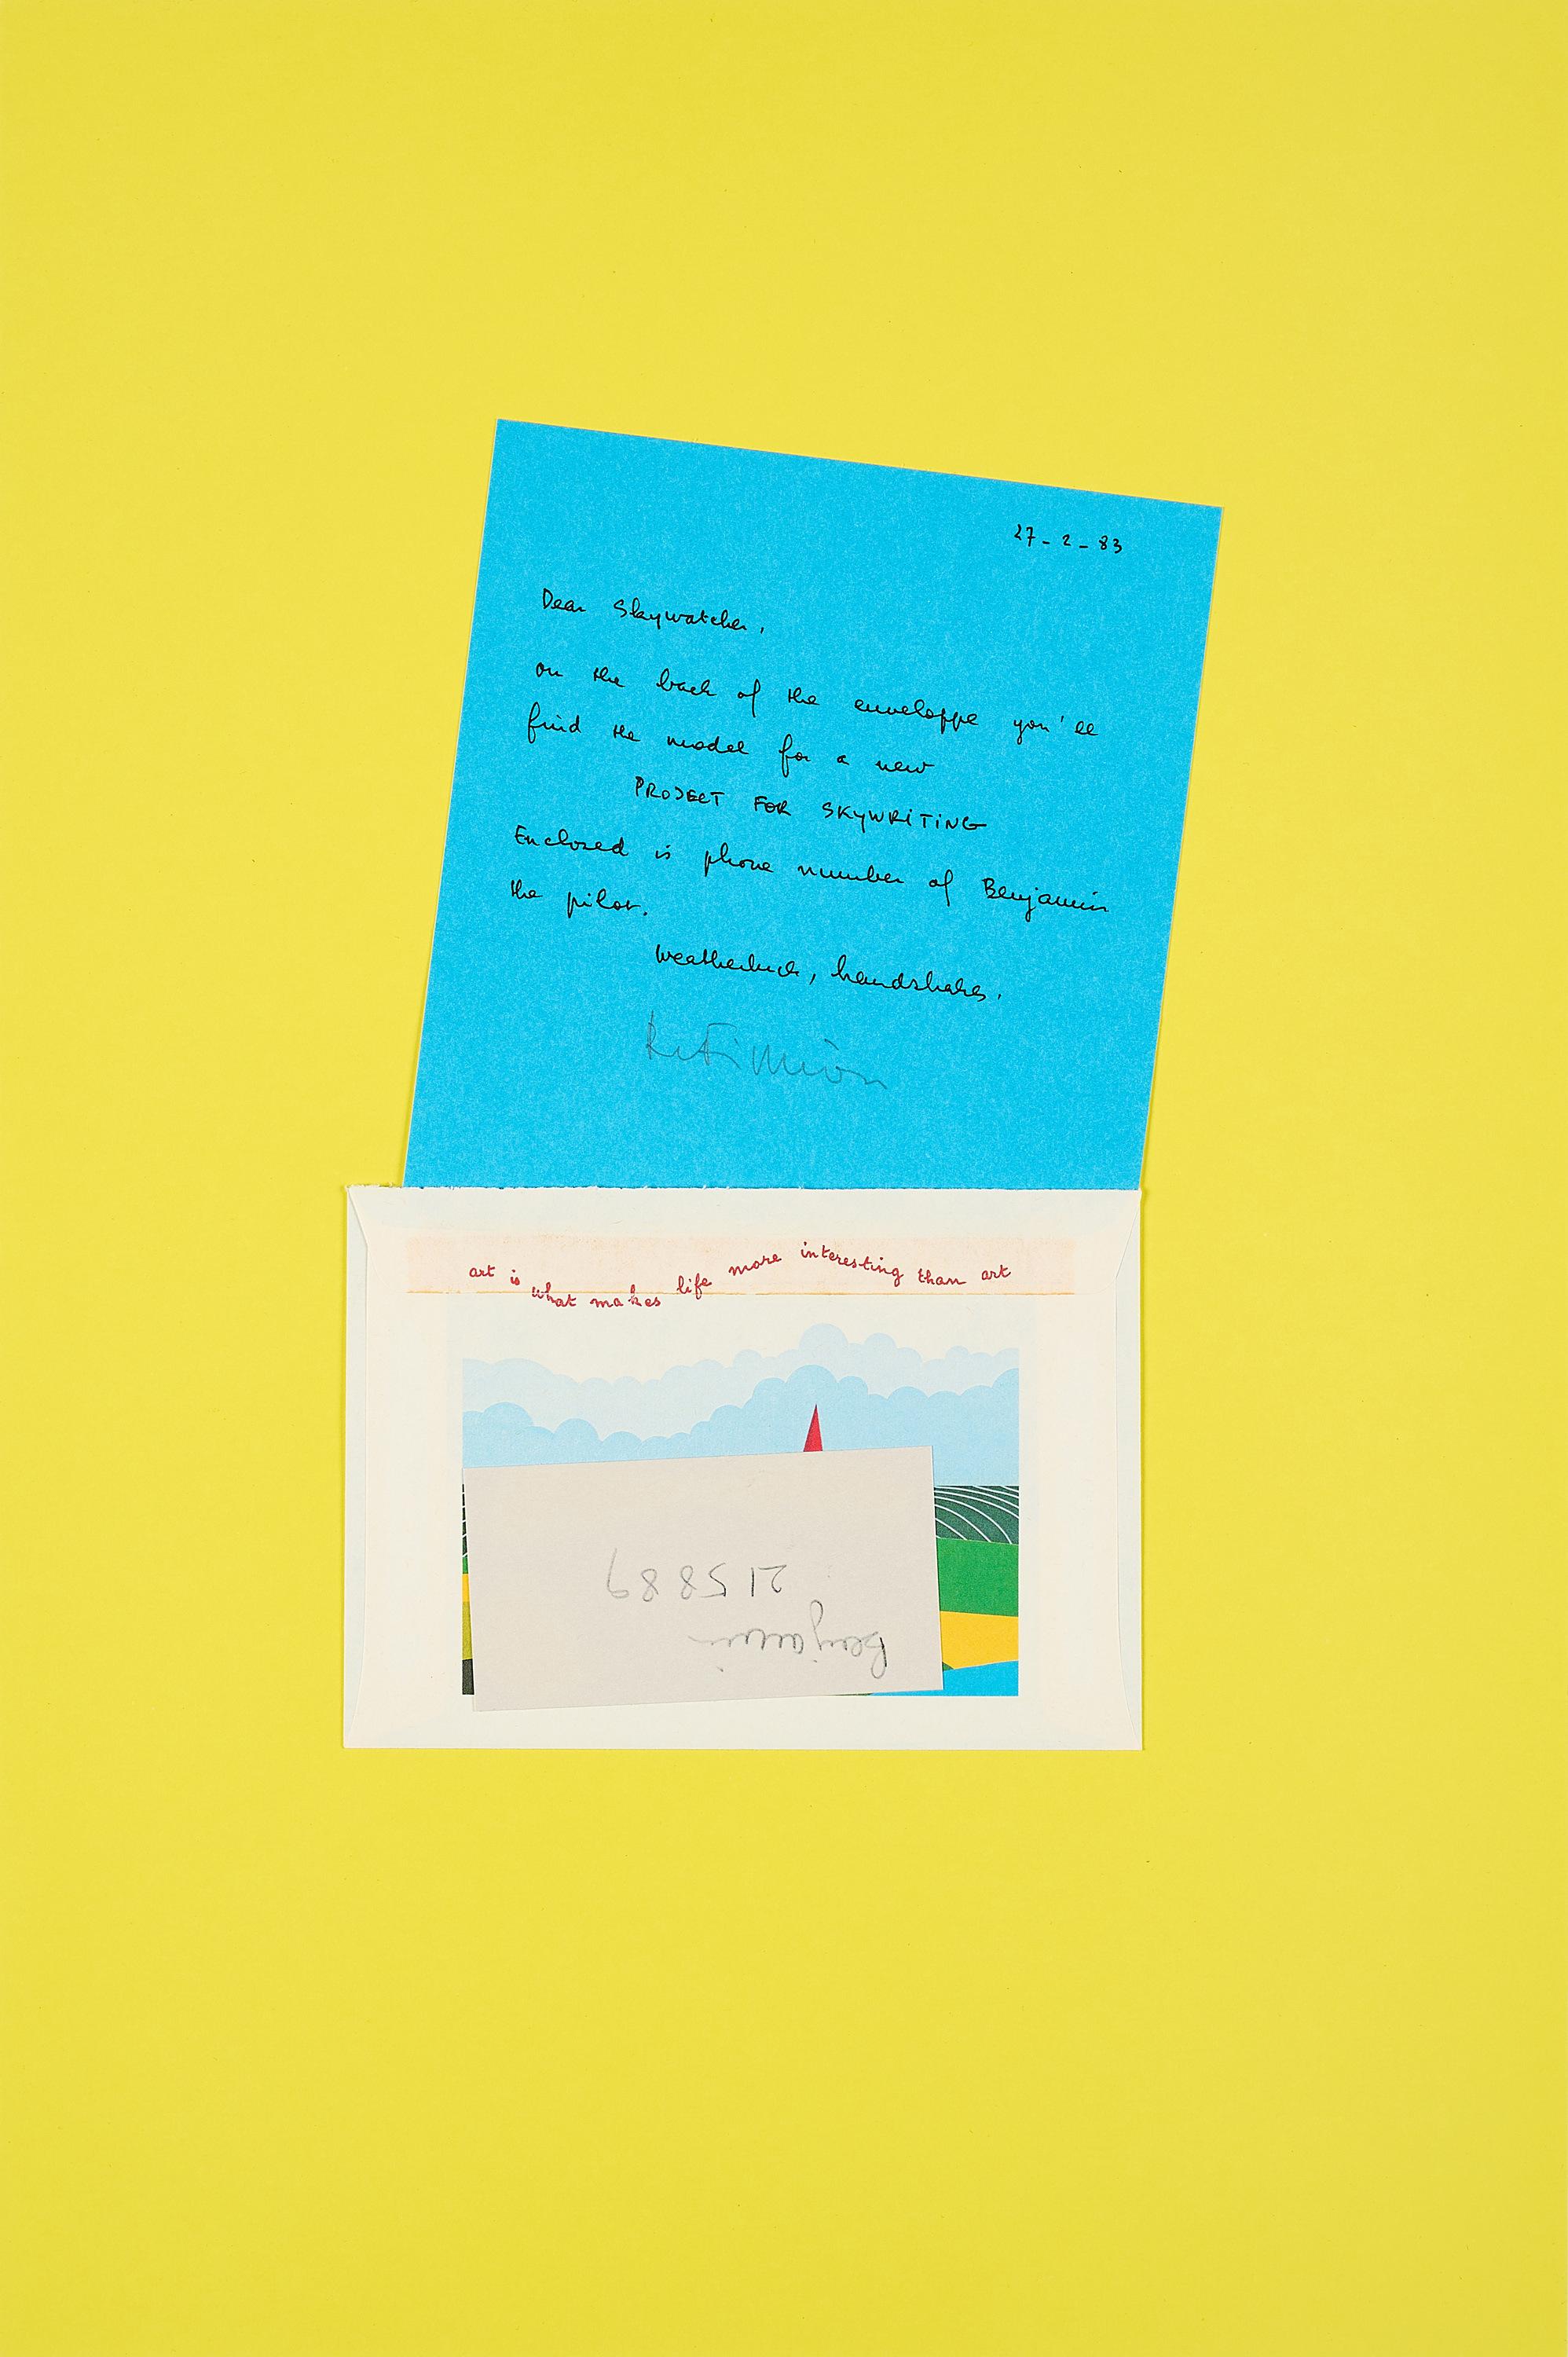 27 - 2 - 83
Dear Skywatcher,
on the back of the enveloppe you'll
find the model for a new
PROJECT FOR SKYWRITING
Enclosed is phone number of Benjamin
the pilot.
Weatherluck, handshakes.
art is what makes life more interesting than art
Benjamin
215889